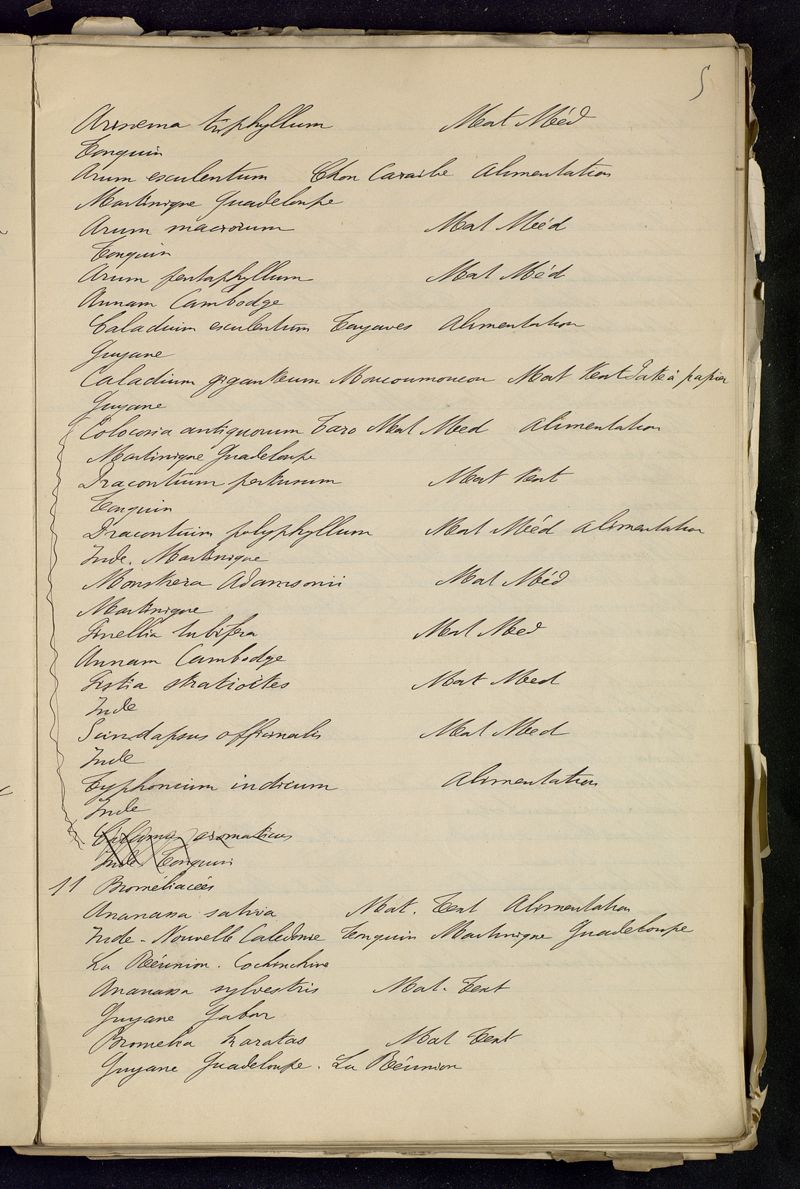 5
Arisema triphyllum Mat Méd
Tonquin
Arum esculentum Chou Caraibe Alimentation
Martinique Guadeloupe
Arum Mat Méd
Tonquin
Arum pentaphyllum Mat Méd
Annam Cambodge
Caladium esculentum Tayaves Alimentation
Guyane
Caladium giganteum Moucoumoucou Mat text Pate à papier
Guyane
Colocosia antiquorum Taro Mat Med Alimentation
Martinique Guadeloupe
Dracontium pertusum Mat text
Tonquin
Dracontium polyphyllum Mat Méd alimentation
Inde. Martinique
Monstera Adamsonii Mat Méd
Martinique
Pinellia tubifera Mat Med
Annam Cambodge
Pistia stratioites Mat Med
Inde
Scindapsus officinalis Mat Med
Inde
Typhonium indicum Alimentation
Inde
aromaticus
Inde Tonquin
11 Broméliacées
Ananassa sativa Mat. Text Alimentation
Inde - Nouvelle Caledonie Tonquin Martinique Guadeloupe
La Réunion. Cochinchine
Ananassa sylvestris Mat. Text
Guyane Gabon
Bromelia karatas Mat Text
Guyane Guadeloupe. La Réunion